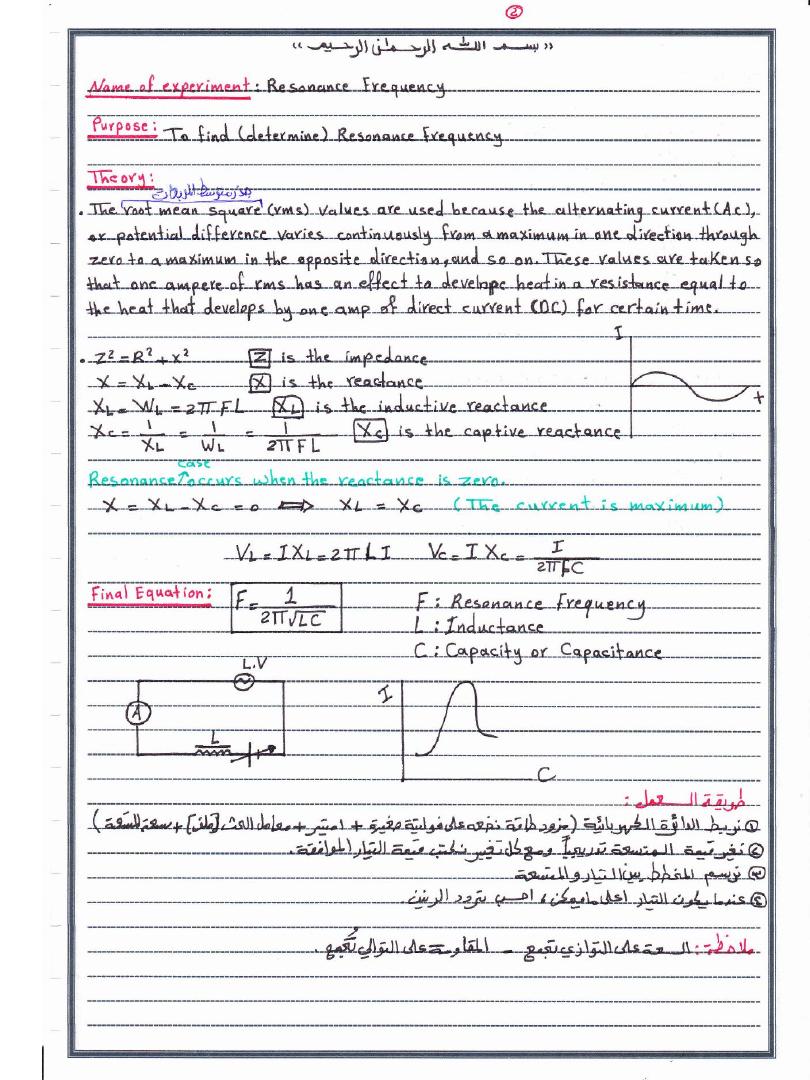 ②
«بسم الله الرحمن الرحيم»
Name of experiment: Resonance Frequency
Purpose: To find (determine) Resonance Frequency
Theory:
جذر متوسط المربعات
• The root mean square (rms) values are used because the alternating current (Ac),
or potential difference varies continuously from a maximum in one direction through
zero to a maximum in the opposite direction, and so on. These values are taken so
that one ampere of rms has an effect to develope heat in a resistance equal to
the heat that develops by one amp of direct current (DC) for certain time.
I
• Z² = R² + x² Z is the impedance
X = XL - Xc X is the reactance
t
XL = WL = 2π FL XL is the inductive reactance
Xc = 1/XL = 1/WL = 1/2π FL Xc is the captive reactance
case
Resonance ↑ occurs when the reactance is zero.
X = XL - Xc = 0 ⟹ XL = Xc (The current is maximum)
VL = I XL = 2π L I Vc = I Xc = I/2π FC
Final Equation: F = 1/2π√LC F: Resonance Frequency
L: Inductance
C: Capacity or Capacitance
L.V
I
A
L
C
طريقة العمل:
① نربط الدائرة الكهربائية (مزود طاقة نضعه على فولتية صغيرة + اميتر + معامل الحث [ملف] +
② نغير قيمة المتسعة تدريجياً ومع كل تغير نكتب قيمة التيار الموافقة.
③ نرسم المخطط بين التيار والمتسعة
④ عندما يكون التيار اعلى ما يمكن، احسب تردد الرنين.
ملاحظة: السعة على التوازي تجمع - المقاومة على التوالي تُجمع.